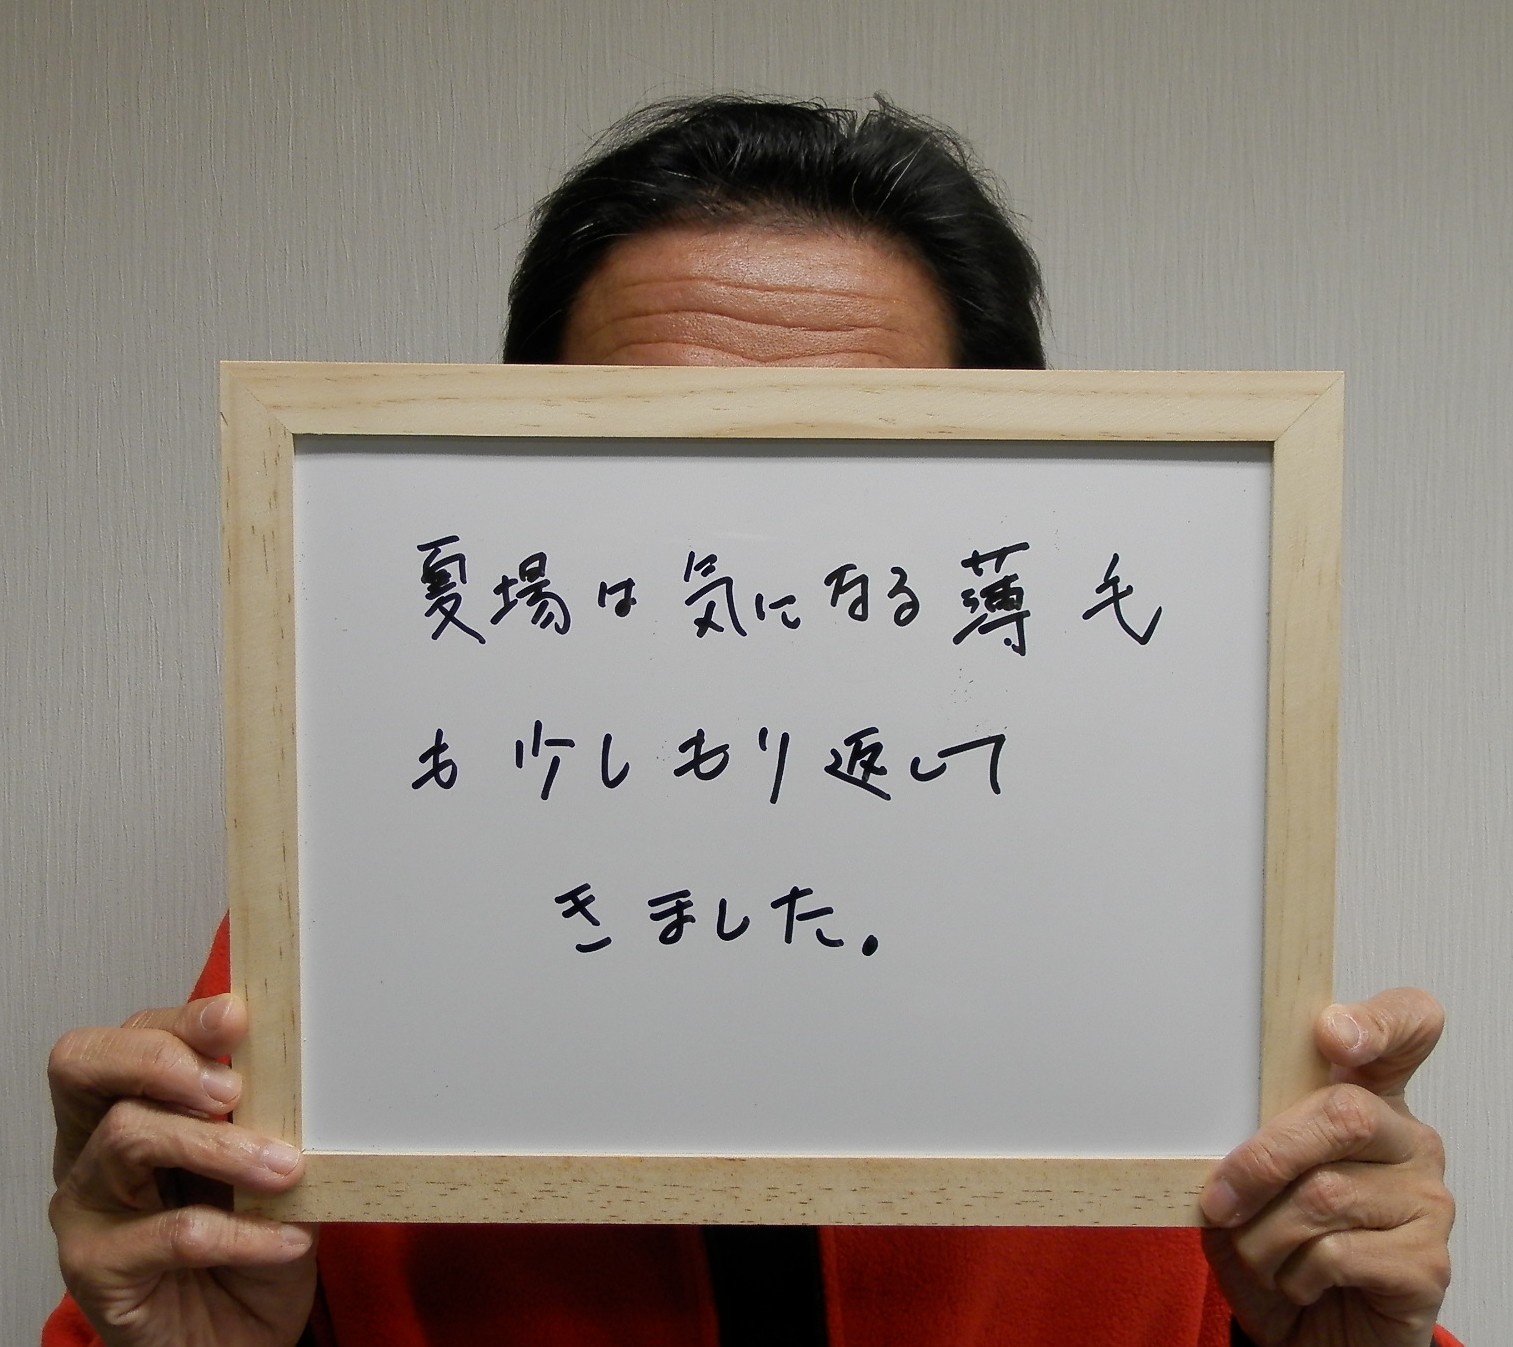 夏場は気になる薄毛
も少しもり返して
きました.